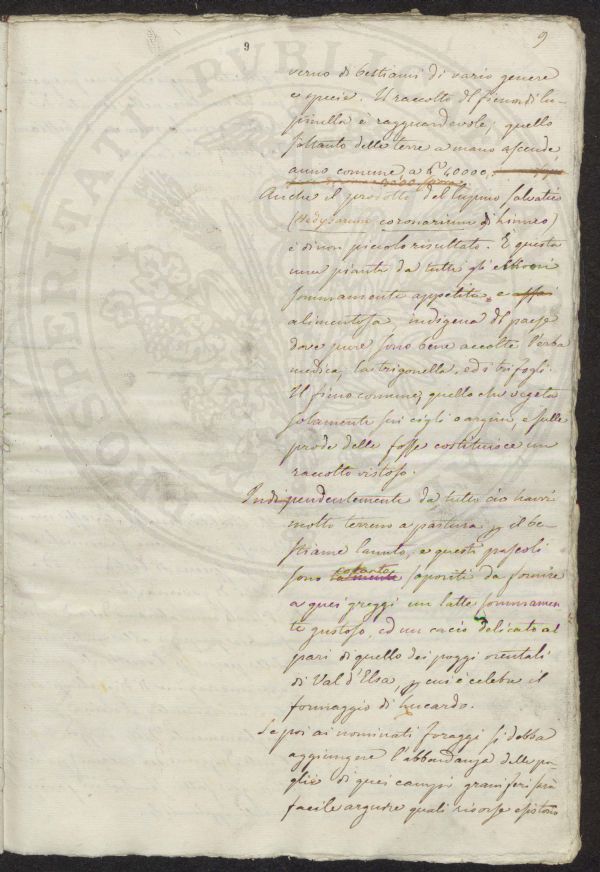 9
9
verno di bestiami di vario genere
e specie. Il raccolto del fieno di lu-
pinella è ragguardevole; quello
soltanto delle terre a mano ascende
anno comune a 40000.
Anche il prodotto del lupino salvatico
(Hedysarum coronarium di Linneo)
è di non piccolo risultato. È questa
una pianta da tutti gli
sommamente appetita, e assai
alimentosa, indigena del paese
dove pure sono bene accolte l'erba
medica, la trigonella, ed i trifogli.
Il fieno comune, quello che vegeta
solamente sui cigli o argini, e sulle
prode delle fosse costituisce un
raccolto vistoso.
Indipendentemente da tutto ciò havvi
molto terreno a pastura p il be-
stiame lanuto, e questi pascoli
sono cotanto saporiti da fornire
a quei greggi un latte sommamen
te gustoso, ed un cacio delicato al
pari di quello dei poggi orientali
di Val d'Elsa, p cui è celebre il
formaggio di Lucardo.
Se poi ai nominati foraggi si debba
aggiungere l'abbondanza delle pa-
glie di quei campi graniferi sarà
facile arguire quali risorse esistono
VPERITATI PVBLIC